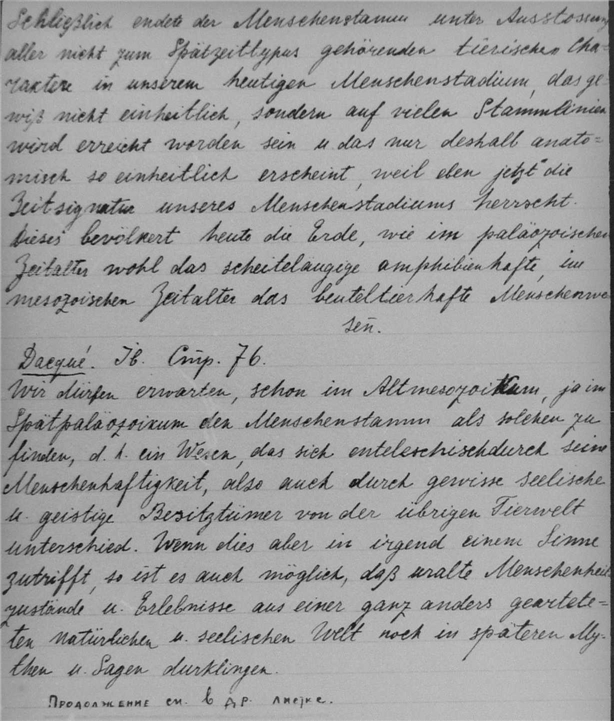 Schließlich endete der Menschenstamm unter Ausstossung
aller nicht zum Spätzeittypus gehörenden tierischen Cha-
raktere in unserem heutigen Menschenstadium, das ge-
wiß nicht einheitlich, sondern auf vielen Stammlinien
wird erreicht worden sein u. das nur deshalb anato=
misch so einheitlich erscheint, weil eben "jetzt" die
Zeitsignatur unseres Menschenstadiums herrscht.
Dieses bevölkert heute die Erde, wie im paläozoischen
Zeitalter wohl das scheiteläugige amphibienhafte, im
mesozoischen Zeitalter das beuteltierhafte Menschenwe-
sen.
Dacqué. Ib. Стр. 76.
Wir dürfen erwarten, schon im Altmesozoikum, ja im
Spätpaläozoikum den Menschenstamm als solchen zu
finden, d. h. ein Wesen, das sich enteleschischdurch seine
Menschenhaftigkeit, also auch durch gewisse seelische
u. geistige Besitztümer von der übrigen Tierwelt
unterschied. Wenn dies aber in irgend einem Sinne
zutrifft, so ist es auch möglich, daß uralte Menschenheits
zustände u. Erlebnisse aus einer ganz anders gearte=
ten natürlichen u. seelischen Welt noch in späteren My-
then u. Sagen durklingen.
Продолжение см. в др. листке.